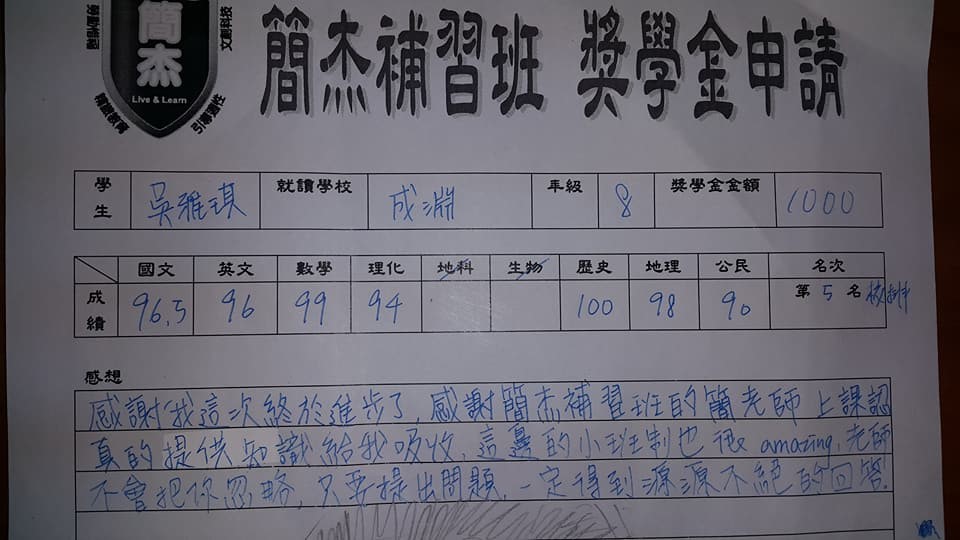 簡杰
Live & Learn
文創科技
引導適性
簡杰補習班 獎學金申請
學生 吳雅琪 就讀學校 成淵 年級 8 獎學金金額 1000
國文 英文 數學 理化 地科 生物 歷史 地理 公民 名次
成績 96.5 96 99 94 100 98 90 第 5 名 校排
感想
感謝我這次終於進步了,感謝簡杰補習班的簡老師上課認
真的提供知識給我吸收,這邊的小班制也很 amazing,老師
不會把你忽略,只要提出問題,一定得到源源不絕的回答!